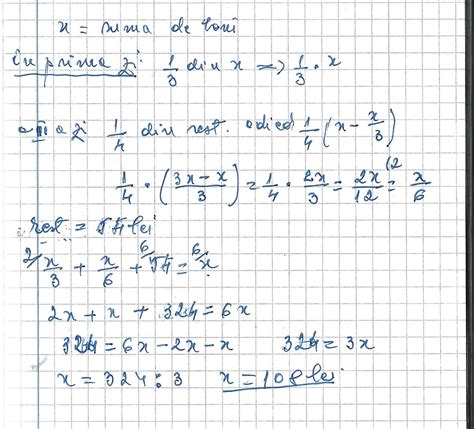 x = suma de bani
în prima zi: 1/3 din x => 1/3 · x
a II a zi 1/4 din rest. adică 1/4 (x - x/3)
1/4 · ((3x - x)/3) = 1/4 · 2x/3 = 2x/12 (2 = x/6
rest = 54 lei
2/ x/3 + x/6 + 6/ 54 = 6/ x
2x + x + 324 = 6x
324 = 6x - 2x - x 324 = 3x
x = 324 : 3 x = 108 lei